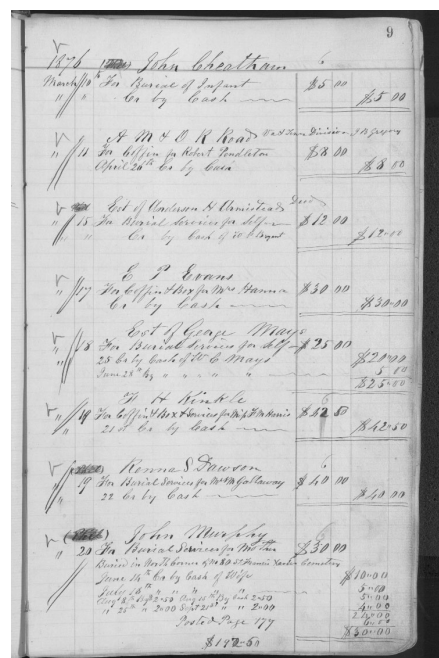 9
1876 John Cheatham
March 10th For Burial of Infant $5 00
" " Cr by Cash $5 00
A M & O R Road Va & Tenn Division
" 11 For Coffin for Robert Pendleton $8 00
April 26th Cr by Cash $8 00
Est of Anderson H Armistead Decd
" 15 For Burial Services for Self $12 00
" " Cr by Cash of $12 00
E P Evans
" 17 For Coffin & Box for Mrs Hanna $30 00
Cr by Cash $30 00
Est of George Mays
" 18 For Burial Services for Self $25 00
25 Cr by Cash of W C Mays $20 00
June 23rd By " " " " 5 00
$25 00
F H Kinkle
" 19 For Coffin & Box & Services for $42 50
21st Cr by Cash $42 50
Kenna S Dawson
" 19 For Burial Services for Mr M Gallaway $40 00
22 Cr by Cash $40 00
John Murphy
" 20 For Burial Services for Mother $30 00
Buried in North Corner of No 80 St Francis Xavier Cemetery
June 14th Cr by Cash of Wife $10 00
July 14th " " " " 5 00
Aug 15th By Cash 2-50 5 00
" 25th " 2 00 Sept 25th " 2 00 4 00
24 00
6 00
Posted Page 177 $30 00
$192-50